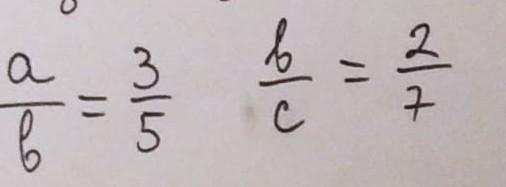 a/b = 3/5   b/c = 2/7